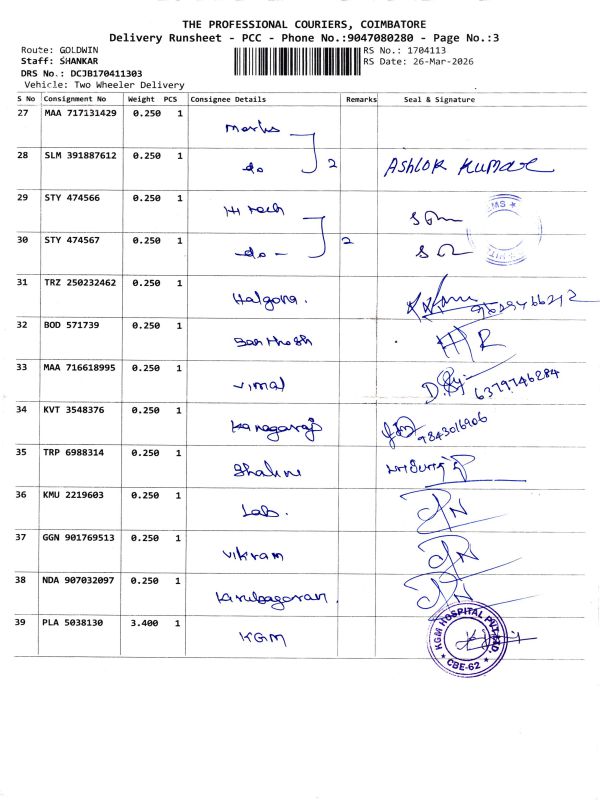 THE PROFESSIONAL COURIERS, COIMBATORE
Delivery Runsheet - PCC - Phone No.:9047080280 - Page No.:3
Route: GOLDWIN
RS No.: 1704113
Staff: SHANKAR
RS Date: 26-Mar-2026
DRS No.: DCJB170411303
Vehicle: Two Wheeler Delivery
S No Consignment No Weight PCS Consignee Details Remarks Seal & Signature
27 MAA 717131429 0.250 1
28 SLM 391887612 0.250 1 do 2 ASHLOK KUMAR
29 STY 474566 0.250 1 Hi Tech
30 STY 474567 0.250 1 -do- 2
31 TRZ 250232462 0.250 1 Halgona.
32 BOD 571739 0.250 1 Santhosh
33 MAA 716618995 0.250 1 Vimal 6379746284
34 KVT 3548376 0.250 1 Kanagaraj 9843016906
35 TRP 6988314 0.250 1 Shalini
36 KMU 2219603 0.250 1 Lab.
37 GGN 901769513 0.250 1 Vikram
38 NDA 907032097 0.250 1 Kirubagaran.
39 PLA 5038130 3.400 1 KGM
KGM HOSPITAL PVT. LTD.
★ CBE-62 ★